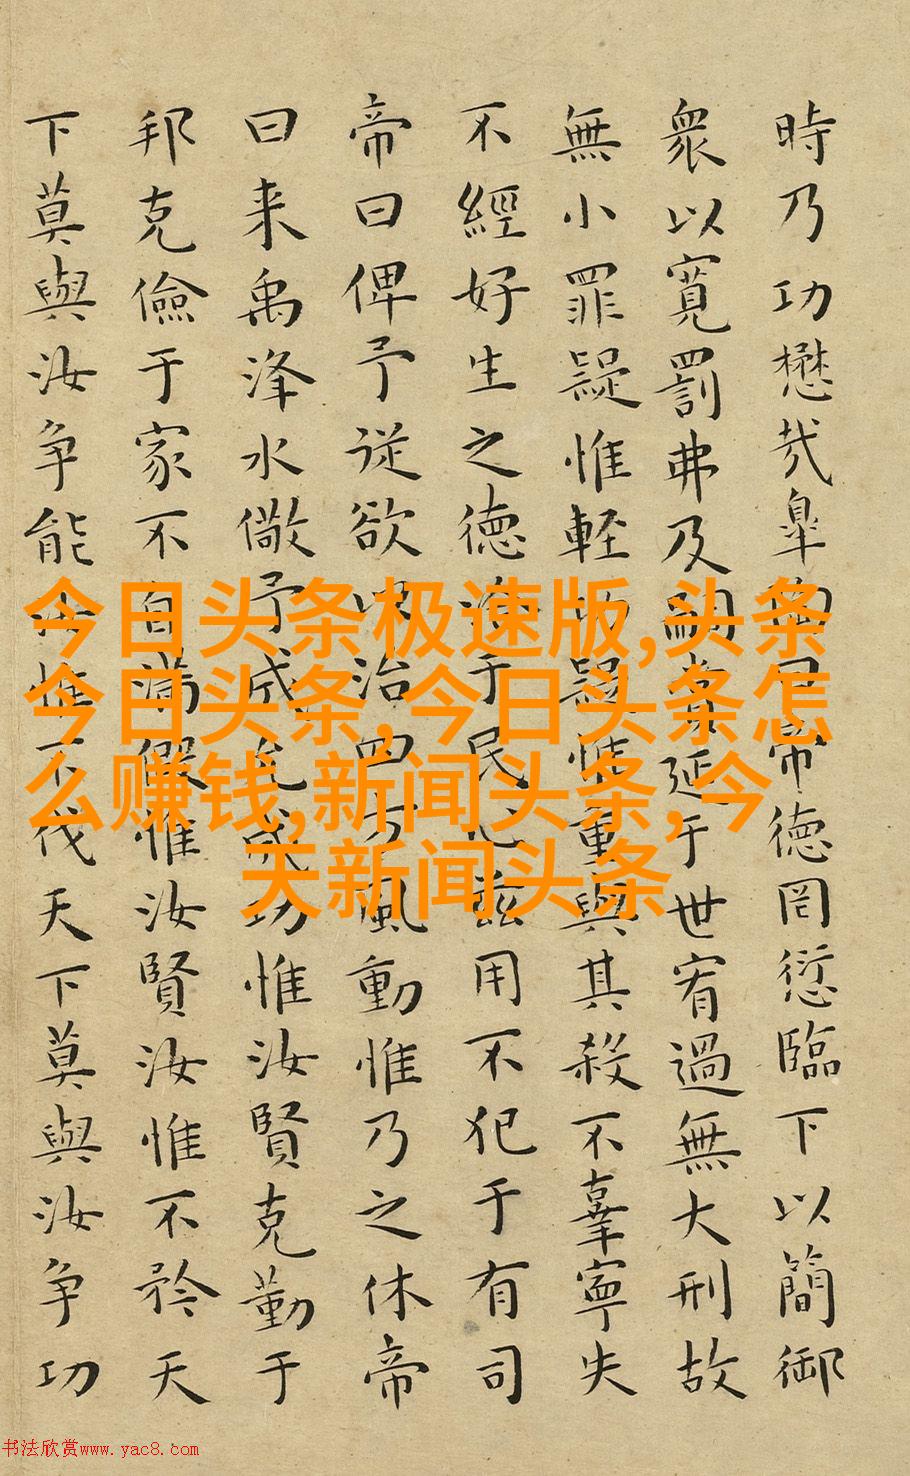 時乃功懋哉皐陶曰帝德罔愆臨下以簡御
衆以寬罰弗及嗣賞延于世宥過無大刑故
無小罪疑惟軽功疑惟重與其殺不辜寧失
不經好生之德洽于民心兹用不犯于有司
帝曰俾予従欲以治四方風動惟乃之休帝
曰来禹洚水儆予成允成功惟汝賢克勤于
邦克儉于家不自滿假惟汝賢汝惟不矜天
下莫與汝争能汝惟不伐天下莫與汝争功
今日头条极速版,头条
今日头条,今日头条怎
么赚钱,新闻头条,今
天新闻头条
书法欣赏www.yac8.com